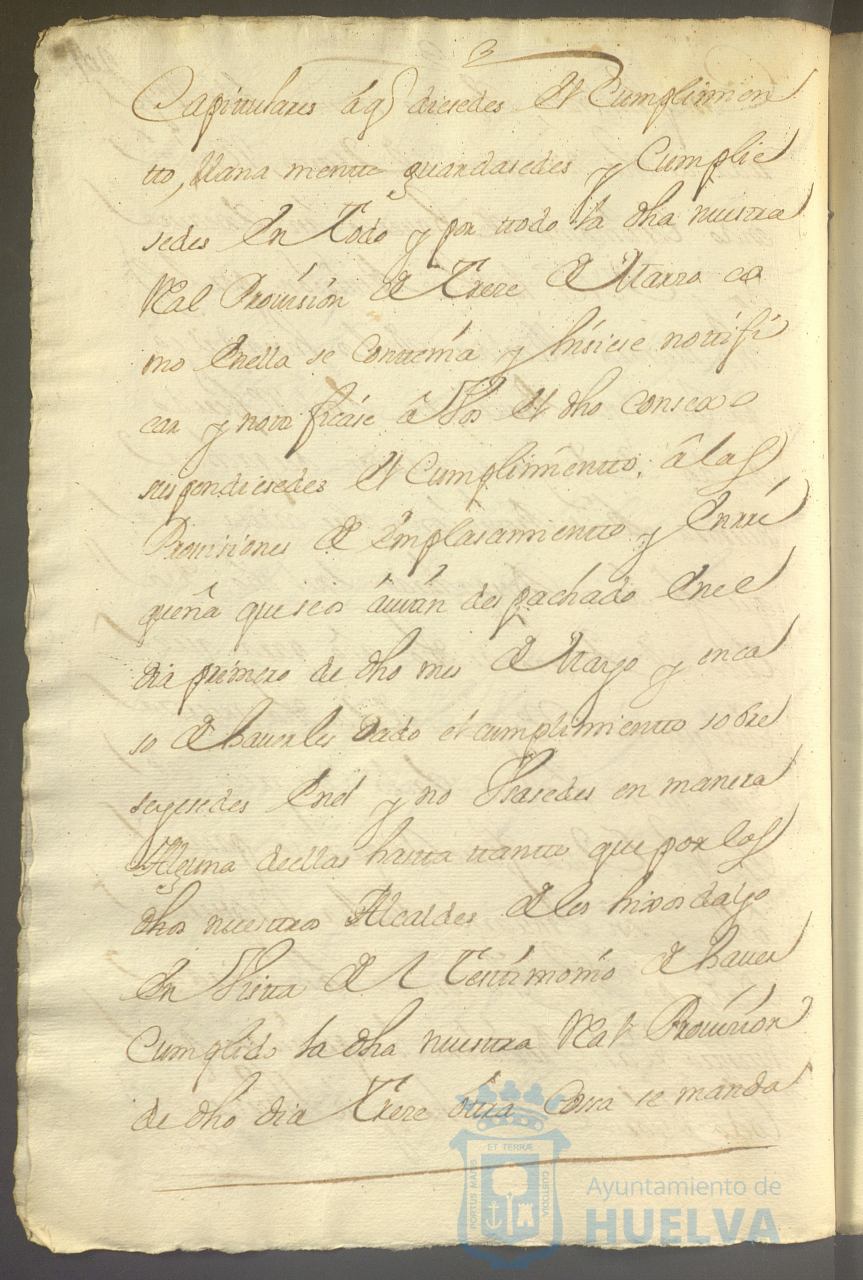 Capitulares á q.e diesedes el Cumplimien
tto, llana mentte guardasedes y Cumplie
sedes en Todo y por ttodo la dha nuestra
Real Provisión de Treze de Marzo co
mo en ella se Contenía y hísiese nottifi
car y nottificáse â Vos el dho Consexo
suspendiesedes el Cumplimientto, â las
Provisiones de emplasamientto y enrri
queña que se os âuían despachado en el
dia primero de dho mes de Marzo y en ca
so de hauerles dado el cumplimientto sobre
seyesedes en el y no Vsasedes en manera
Alguna de ellas hasta ttantto que por los
dhos nuestros Alcaldes de los hixosdalgo
en Vista de el Testímonío de hauer
Cumplido la dha nuestra Real Provísion
de dho dia Treze ôtra Cossa se manda
ET TERRÆ
PORTUS MARIS
CUSTODIA
Ayuntamiento de
HUELVA